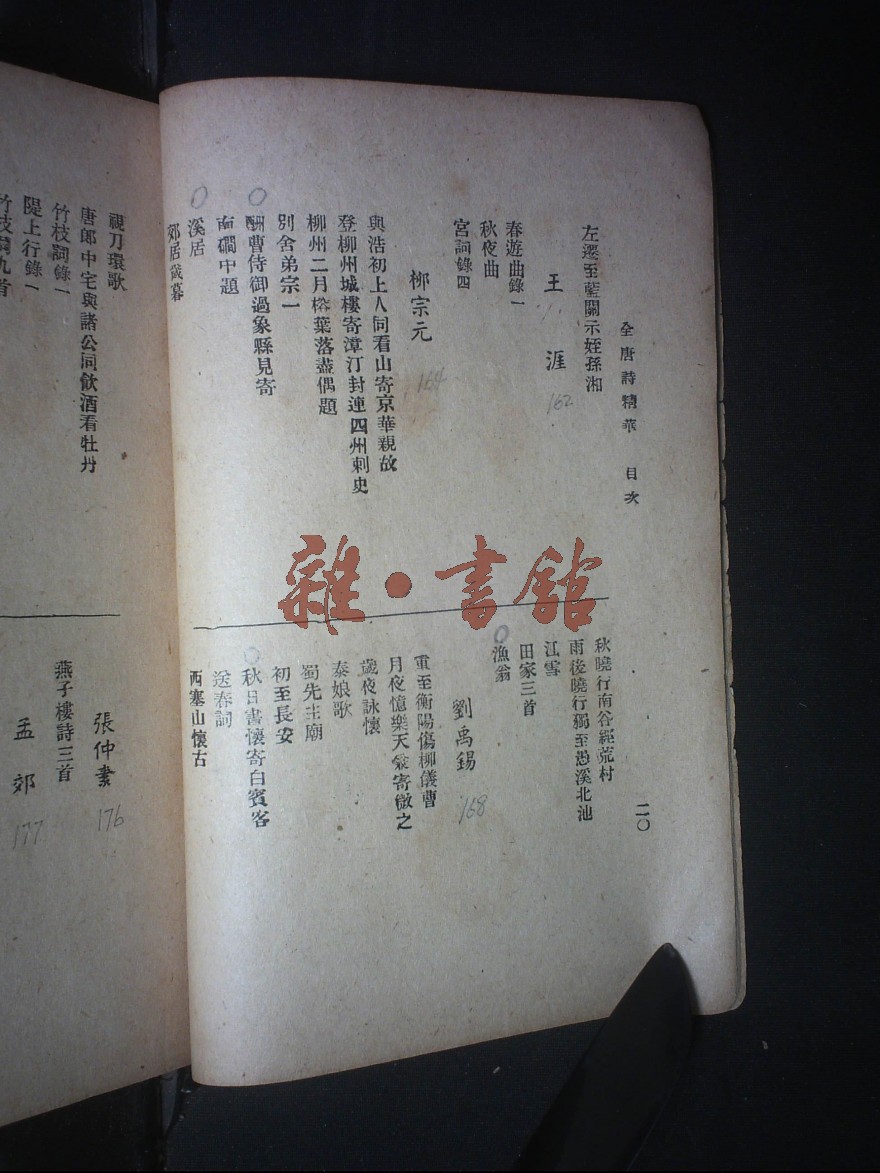 全唐詩精華 目次
二〇
左遷至藍關示姪孫湘
王涯
162
春遊曲錄一
秋夜曲
宮詞錄四
柳宗元
164
與浩初上人同看山寄京華親故
登柳州城樓寄漳汀封連四州刺史
柳州二月榕葉落盡偶題
別舍弟宗一
酬曹侍御過象縣見寄
南磵中題
溪居
郊居歲暮
秋曉行南谷經荒村
雨後曉行獨至愚溪北池
江雪
田家三首
漁翁
劉禹錫
168
重至衡陽傷柳儀曹
月夜憶樂天兼寄微之
歲夜詠懷
泰娘歌
蜀先主廟
初至長安
秋日書懷寄白賓客
送春詞
西塞山懷古
視刀環歌
唐郎中宅與諸公同飲酒看牡丹
竹枝詞錄一
隄上行錄一
竹枝詞九首
張仲素
176
燕子樓詩三首
孟郊
177
雜·書館